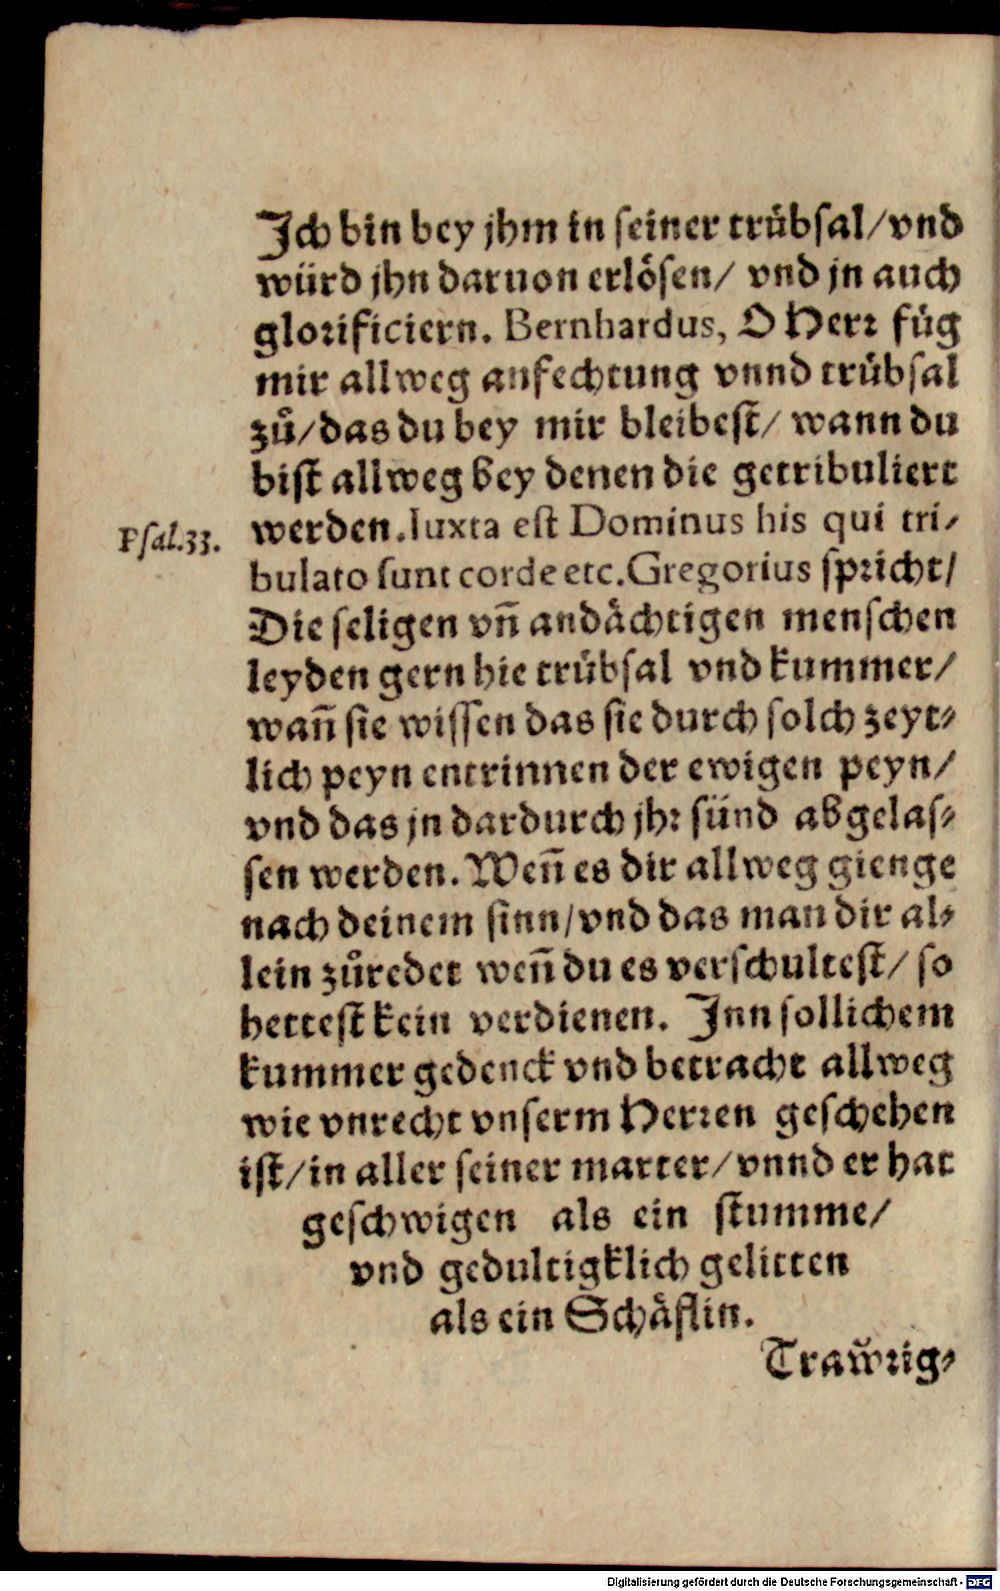 Ich bin bey jhm in seiner trübsal/vnd
würd jhn daruon erlösen/ vnd jn auch
glorificiern. Bernhardus, O Herr füg
mir allweg anfechtung vnnd trübsal
zů/das du bey mir bleibest/ wann du
bist allweg bey denen die getribuliert
werden. Iuxta est Dominus his qui tri-
Psal.33.
bulato sunt corde etc. Gregorius spricht/
Die seligen vn̄ andächtigen menschen
leyden gern hie trübsal vnd kummer/
wan̄ sie wissen das sie durch solch zeyt-
lich peyn entrinnen der ewigen peyn/
vnd das jn dardurch jhr sünd abgelas-
sen werden. Wen̄ es dir allweg gienge
nach deinem sinn/vnd das man dir al-
lein zůredet wen̄ du es verschultest/ so
hettest kein verdienen. Inn sollichem
kummer gedenck vnd betracht allweg
wie vnrecht vnserm Herren geschehen
ist/in aller seiner marter/vnnd er hat
geschwigen als ein stumme/
vnd gedultigklich gelitten
als ein Schäflin.
Traẘrig-
Digitalisierung gefördert durch die Deutsche Forschungsgemeinschaft - DFG